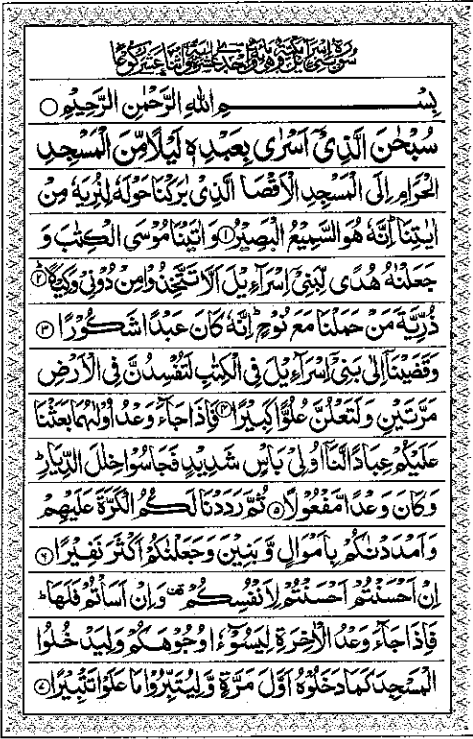 سورة بنی اسرآءیل مکیة وهی مائة واحدی عشرة ایة واثنا عشر رکوعا
بِسْمِ اللهِ الرَّحْمٰنِ الرَّحِيْمِ ○
سُبْحٰنَ الَّذِيْۤ اَسْرٰى بِعَبْدِهٖ لَيْلًا مِّنَ الْمَسْجِدِ
الْحَرَامِ اِلَى الْمَسْجِدِ الْاَقْصَا الَّذِيْ بٰرَكْنَا حَوْلَهٗ لِنُرِيَهٗ مِنْ
اٰيٰتِنَا ؕ اِنَّهٗ هُوَ السَّمِيْعُ الْبَصِيْرُ ۝۱ وَاٰتَيْنَا مُوْسَى الْكِتٰبَ وَ
جَعَلْنٰهُ هُدًى لِّبَنِيْۤ اِسْرَآءِيْلَ اَلَّا تَتَّخِذُوْا مِنْ دُوْنِيْ وَكِيْلًا ؕ۝۲
ذُرِّيَّةَ مَنْ حَمَلْنَا مَعَ نُوْحٍ ؕ اِنَّهٗ كَانَ عَبْدًا شَكُوْرًا ۝۳
وَقَضَيْنَاۤ اِلٰى بَنِيْۤ اِسْرَآءِيْلَ فِي الْكِتٰبِ لَتُفْسِدُنَّ فِي الْاَرْضِ
مَرَّتَيْنِ وَلَتَعْلُنَّ عُلُوًّا كَبِيْرًا ۝۴ فَاِذَا جَآءَ وَعْدُ اُوْلٰىهُمَا بَعَثْنَا
عَلَيْكُمْ عِبَادًا لَّنَاۤ اُولِيْ بَاْسٍ شَدِيْدٍ فَجَاسُوْا خِلٰلَ الدِّيَارِ ؕ
وَكَانَ وَعْدًا مَّفْعُوْلًا ۝۵ ثُمَّ رَدَدْنَا لَكُمُ الْكَرَّةَ عَلَيْهِمْ
وَاَمْدَدْنٰكُمْ بِاَمْوَالٍ وَّبَنِيْنَ وَجَعَلْنٰكُمْ اَكْثَرَ نَفِيْرًا ۝۶
اِنْ اَحْسَنْتُمْ اَحْسَنْتُمْ لِاَنْفُسِكُمْ ۫ وَاِنْ اَسَاْتُمْ فَلَهَا ؕ
فَاِذَا جَآءَ وَعْدُ الْاٰخِرَةِ لِيَسُوْٓءٗا وُجُوْهَكُمْ وَلِيَدْخُلُوا
الْمَسْجِدَ كَمَا دَخَلُوْهُ اَوَّلَ مَرَّةٍ وَّلِيُتَبِّرُوْا مَا عَلَوْا تَتْبِيْرًا ۝۷